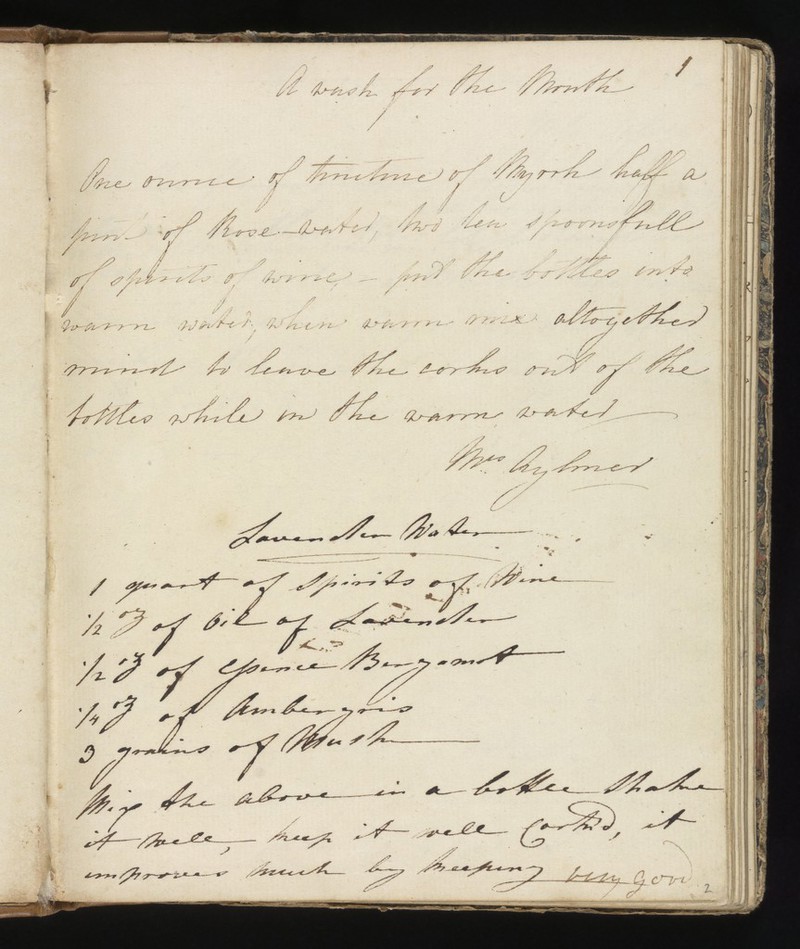 1
A wash for the Mouth
One ounce of tincture of Myrrh half a
pint of Rose-water, two tea spoonsfull
of spirits of wine, - put the bottles into
warm water, when warm mix altogether
mind to leave the corks out of the
bottles while in the warm water
Mrs Aylmer
Lavender Water
1 quart of Spirits of Wine
1/2 oz of Oil of Lavender
1/2 oz of Essence Bergamot
1/4 oz of Ambergris
3 grains of Musk
Mix the above in a bottle Shake
it well, keep it well Cork'd, it
improves much by keeping very good
2